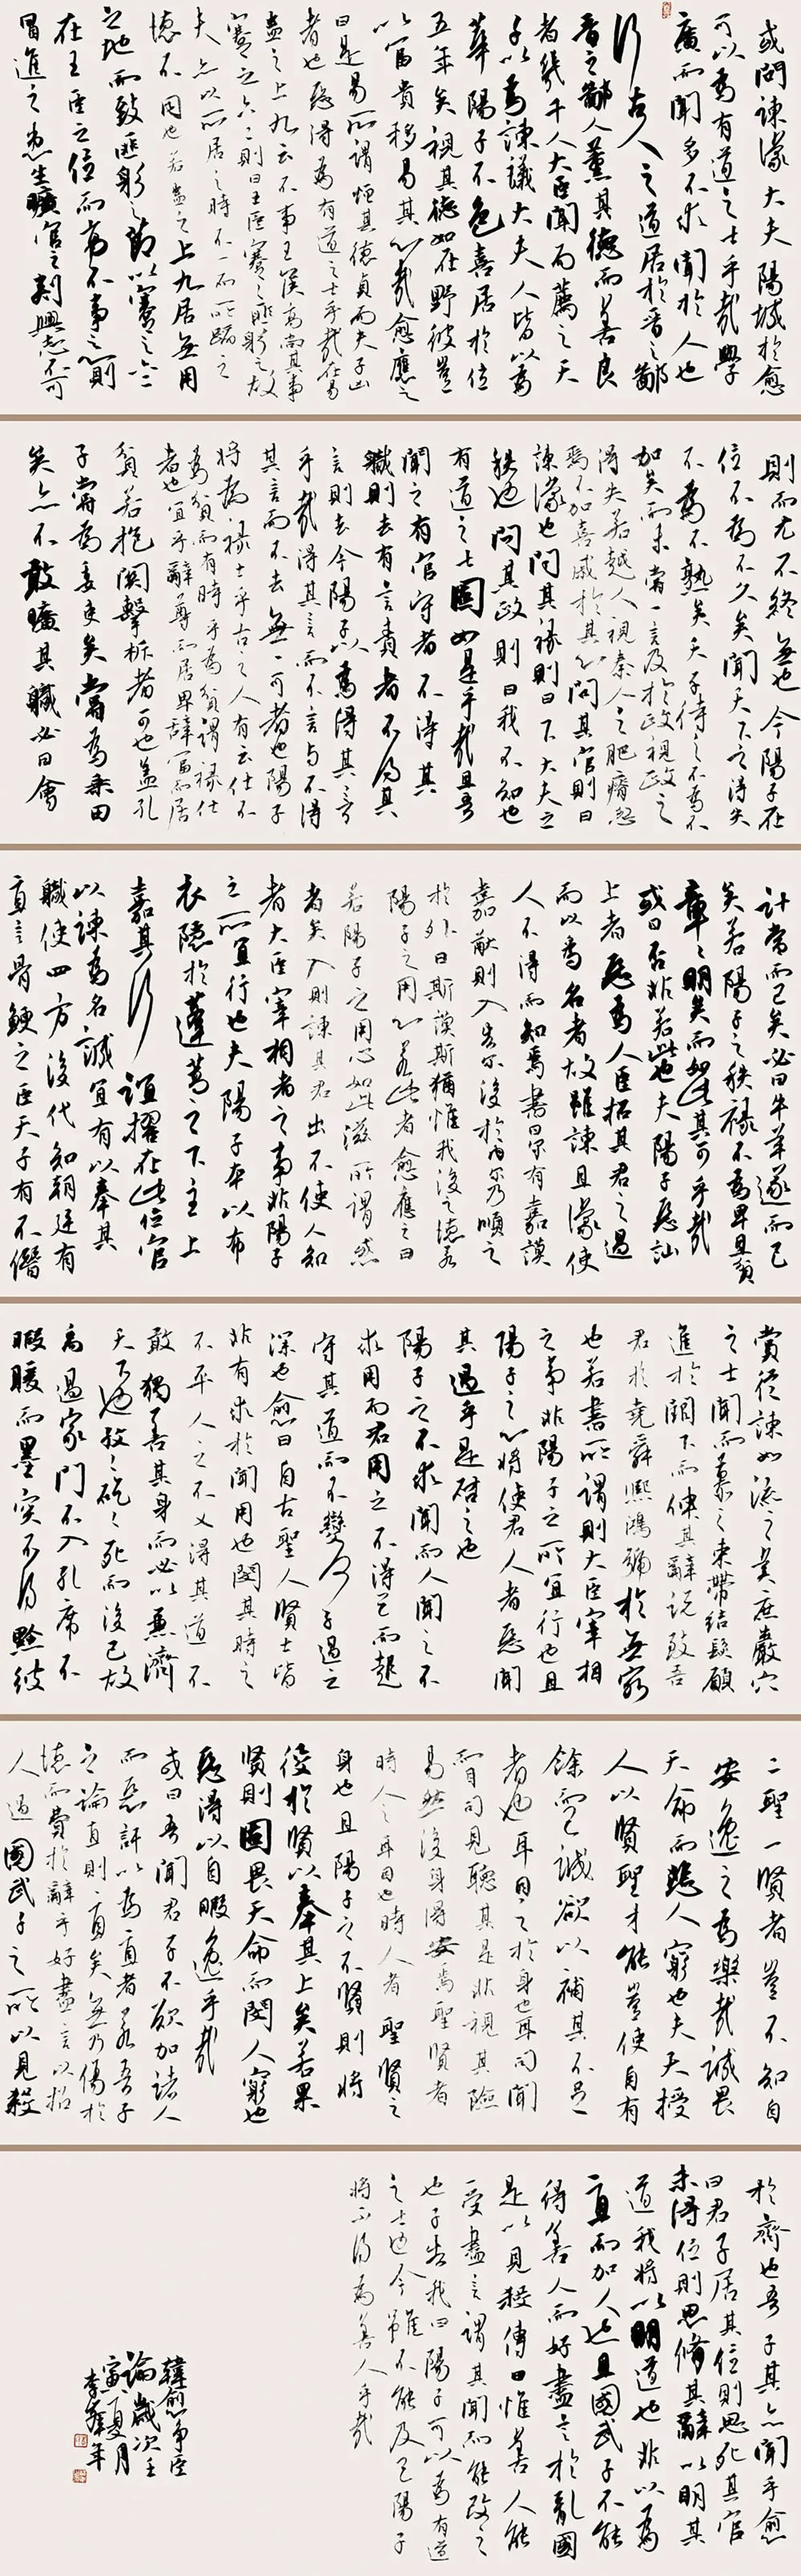 或問諫議大夫陽城於愈
可以為有道之士乎哉學
廣而聞多不求聞於人也
行古人之道居於晉之鄙
晉之鄙人薰其德而善良
者幾千人大臣聞而薦之天
子以為諫議大夫人皆以為
華陽子不色喜居於位
五年矣視其德如在野彼豈
以富貴移易其心哉愈應之
曰是易所謂恒其德貞而夫子凶
者也惡得為有道之士乎哉在易
蠱之上九云不事王侯高尚其事
蹇之六二則曰王臣蹇蹇匪躬之故
夫亦以所居之時不一而所蹈之
德不同也若蠱之上九居無用
之地而致匪躬之節以蹇之六二
在王臣之位而高不事之心則
冒進之患生曠官之刺興志不可
則而尤不終無也今陽子在
位不為不久矣聞天下之得失
不為不熟矣天子待之不為不
加矣而未嘗一言及於政視政之
得失若越人視秦人之肥瘠忽
焉不加喜戚於其心問其官則曰
諫議也問其祿則曰下大夫之
秩也問其政則曰我不知也
有道之士固如是乎哉且吾
聞之有官守者不得其
職則去有言責者不得其
言則去今陽子以為得其言
乎哉得其言而不言與不得
其言而不去無一可者也陽子
將為祿仕乎古之人有云仕不
為貧而有時乎為貧謂祿仕
者也宜乎辭尊而居卑辭富而居
貧若抱關擊柝者可也蓋孔
子嘗為委吏矣嘗為乘田
矣亦不敢曠其職必曰會
計當而已矣必曰牛羊遂而已
矣若陽子之秩祿不為卑且貧
章章明矣而如此其可乎哉
或曰否非若此也夫陽子惡訕
上者惡為人臣招其君之過
而以為名者故雖諫且議使
人不得而知焉書曰爾有嘉謨
嘉猷則入告爾後於內爾乃順之
於外曰斯謨斯猶惟我後之德若
陽子之用心若此者愈應之曰
若陽子之用心如此滋所謂惑
者矣入則諫其君出不使人知
者大臣宰相者之事非陽子
之所宜行也夫陽子本以布
衣隱於蓬蒿之下主上
嘉其行誼擢在此位官
以諫為名誠宜有以奉其
職使四方後代知朝廷有
直言骨鯁之臣天子有不僭
賞從諫如流之美庶巖穴
之士聞而慕之束帶結髮願
進於闕下而伸其辭說致吾
君於堯舜熙鴻號於無窮
也若書所謂則大臣宰相
之事非陽子之所宜行也且
陽子之心將使君人者惡聞
其過乎是啟之也
陽子之不求聞而人聞之不
求用而君用之不得已而起
守其道而不變何子過之
深也愈曰自古聖人賢士皆
非有求於聞用也閔其時之
不平人之不乂得其道不
敢獨善其身而必以兼濟
天下也孜孜矻矻死而後已故
禹過家門不入孔席不
暇暖而墨突不得黔彼
二聖一賢者豈不知自
安逸之為樂哉誠畏
天命而悲人窮也夫天授
人以賢聖才能豈使自有
餘而已誠欲以補其不足
者也耳目之於身也耳司聞
而目司見聽其是非視其險
易然後身得安焉聖賢者
時人之耳目也時人者聖賢之
身也且陽子之不賢則將
役於賢以奉其上矣若果
賢則固畏天命而閔人窮也
惡得以自暇逸乎哉
或曰吾聞君子不欲加諸人
而惡訐以為直者若吾子
之論直則直矣無乃傷於
德而費於辭乎好盡言以招
人過國武子之所以見殺
於齊也吾子其亦聞乎愈
曰君子居其位則思死其官
未得位則思修其辭以明其
道我將以明道也非以為
直而加人也且國武子不能
得善人而好盡言於亂國
是以見殺傳曰惟善人能
受盡言謂其聞而能改之
也子告我曰陽子可以為有道
之士也今雖不能及已陽子
將不得為善人乎哉
韓愈爭臣
論歲次壬
寅夏月